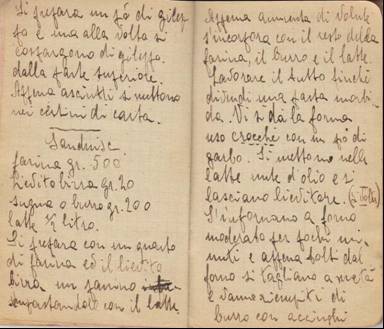 Si prepara un pó di gilep
po e una alla volta si
cospargono di gileppo.
dalla parte superiore.
Appena asciutti si mettono
nei cestini di carta.
Sanduisc
farina gr. 500
Lievito birra gr. 20
sugna o burro gr. 200
latte ½ litro.
Si prepara con un quarto
di farina ed il lievito
birra un panino
impastandolo con il latte
Appena aumenta di volute
s'incorpora con il resto della
farina, il burro e il latte.
Lavorare il tutto finché
divengi una pasta morbi-
da. Vi si dà la forma
uso crocchè con un pó di
garbo. Si mettono nelle
latte unte d'olio e si
lasciano lievitare. (2 volte)
S'infornano a forno
moderato per pochi mi-
nuti e appena tolti dal
forno si tagliano a metà
e vanno riempiti di
burro con acciughi